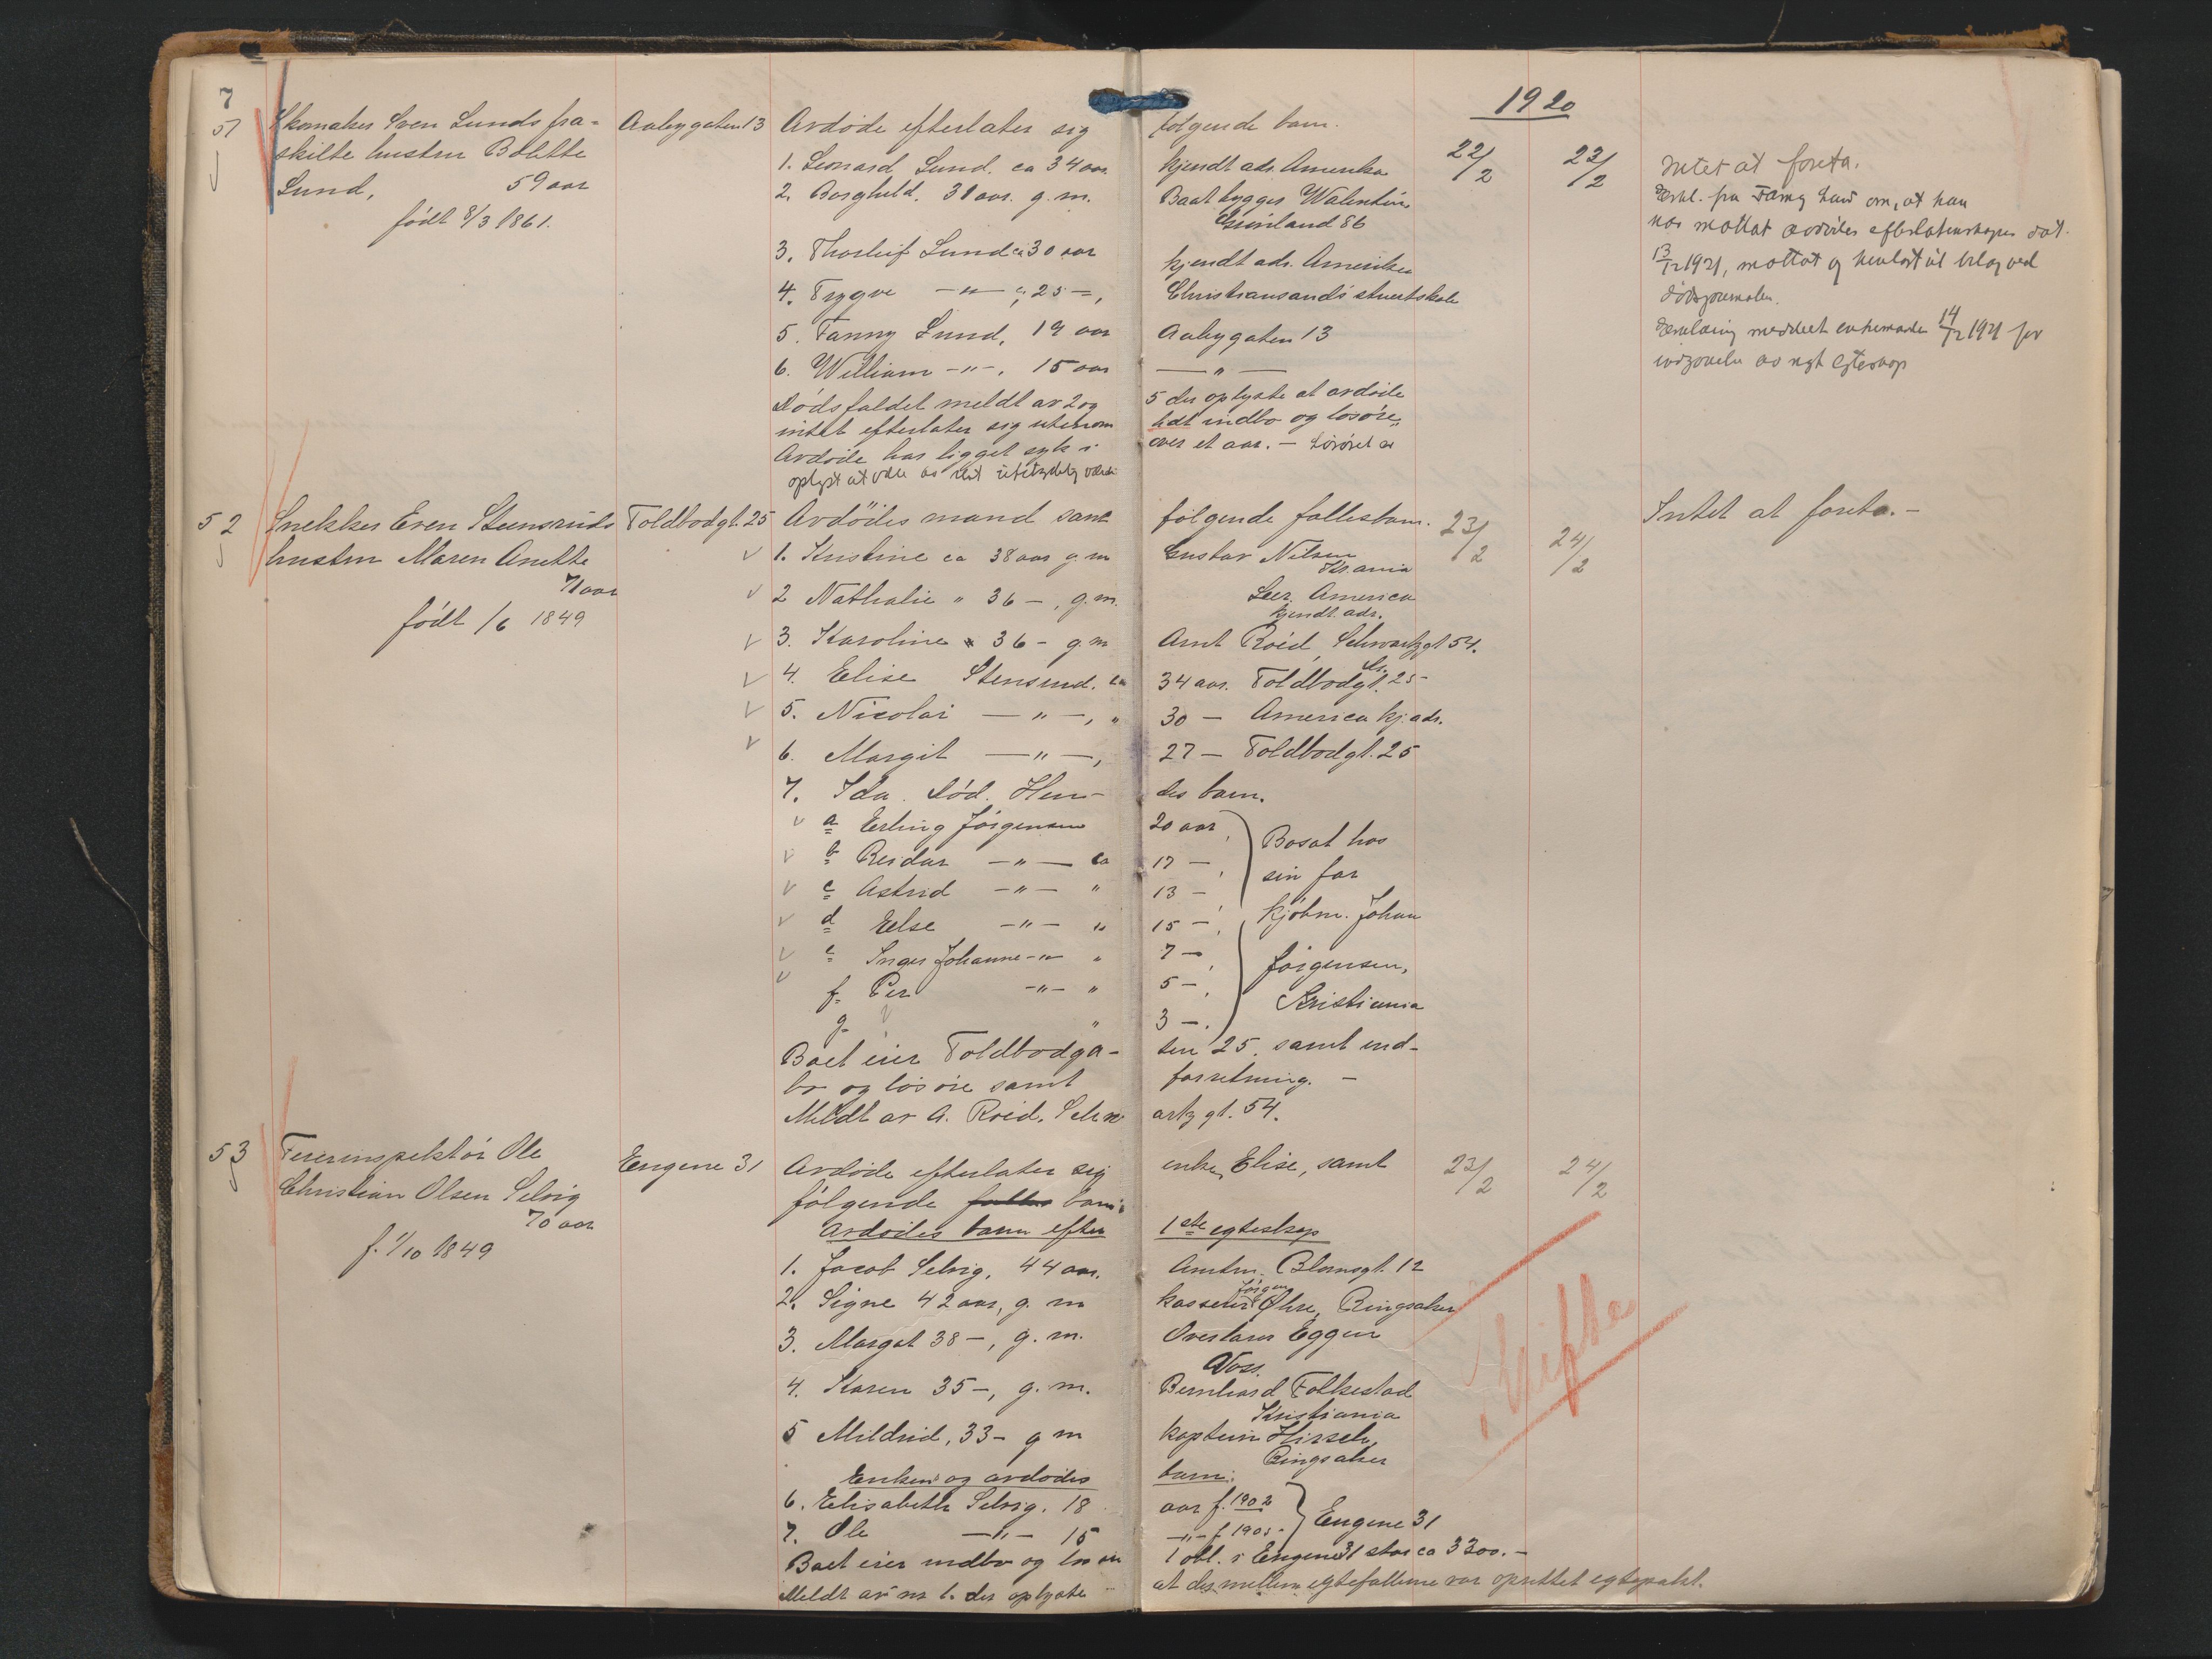 1920
7
51
Skomaker Sven Lunds fra-
skilte hustru Bolette
Lund, 59 aar
født 8/3 1861.
Aabygaten 13
Avdøde efterlater sig følgende barn.
1. Leonard Lund. ca 34 aar. kjendt adr. Amerika
2. Borghild. 31 aar. g. m. Baatbygger Walentin
Grønland 86
3. Thorleif Lund ca 30 aar kjendt adr. Amerika
4. Trygve —"— " 25 —, Christiansands stuertskole
5. Fanny Lund, 19 aar Aabygaten 13
6. William —"—. 15 aar —"—
Dødsfaldet meldt av 2 og 5 der oplyste at avdøde
intet efterlater sig utenom litt indbo og løsøre,
Avdøde har ligget syk i over et aar. — Løsøret er
oplyst at være av helt ubetydelig værdi
22/2
23/2
Intet at foreta.
Erkl. fra Fanny Lund om, at hun
har mottat avdødes efterlatenskaper dat.
13/12 1921, mottat og henlagt til bilag ved
dødsjournalen.
Erklæring meddelt enkemanden 14/12 1921 for
indgaaelse av nyt egteskap
52
Snekker Even Steensruds
hustru Maren Anette
71 aar
født /6 1849
Toldbodgt. 25
Avdødes mand samt følgende fællesbarn.
1. Kristine ca 38 aar g. m Gustav Nilsen
Kr.ania
2 Nathalie " 36 —, g. m. America
kjendt. adr.
3. Karoline " 36 — g. m Arnt Roed, Schwartzgt 54.
4. Elise Stensrud. ca 34 aar. Toldbodgt. 25
5. Nicolai —"—, " 30 — America kj. adr.
6. Margit —"—, 27 — Toldbodgt. 25
7. Ida. død. Hen- des barn.
a Erling Jørgensen 20 aar,
b Reidar —"— ca 17 —,
c Astrid —"— " 13 —
d Else —"— " 15 —,
e Inger Johanne —"— " 7 —,
f. Per —"— " 5 —,
g. " 3 —.
Bosat hos
sin far
kjøbm. Johan
Jørgensen,
Kristiania
Boet eier Toldbodga- ten 25. samt ind-
bo og løsøre samt forretning. —
Meldt av A. Roed. Schw artzgt. 54.
23/2
24/2
Intet at foreta. —
53
Ole
Christian Olsen Selvig
70 aar
f. 1/10 1849
Engene 31
Avdøde efterlater sig enke, Elise, samt
følgende fælles barn:
Avdødes barn efter 1ste egteskap
1. Jacob Selvig. 44 aar. Amtm. Blomsgt. 12
2. Signe 42 aar, g. m kasserer Jørgen Øhre, Ringsaker
3. Margot 38 —, g. m. Overlærer Eggen
Voss.
4. Karen 35 —, g. m. Bernhard Folkestad
Kristiania
5 Mildrid, 33 — g m kaptein Hirsch,
Ringsaker
Enken og avdødes barn:
6. Elisabeth Selvig. 18 aar f. 1902
7. Ole —"— 15 —"— f 1905.
Engene 31
Boet eier indbo og løsøre 1 obl. i Engene 31 stor ca 3300. —
Meldt av nr 1. der oplyste at der mellem egtefællerne var oprettet egtepakt.
23/2
24/2
i skifte